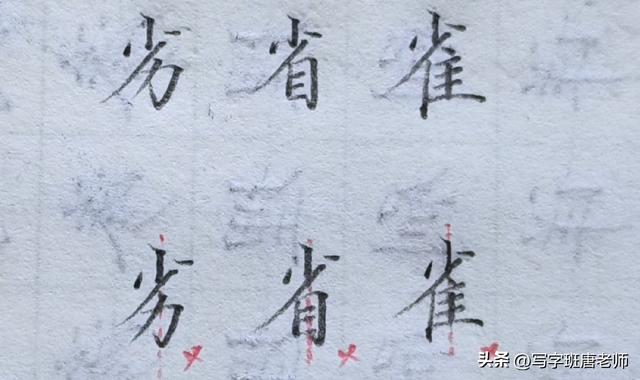 劣省雀
劣省雀
头条 @写字班唐老师